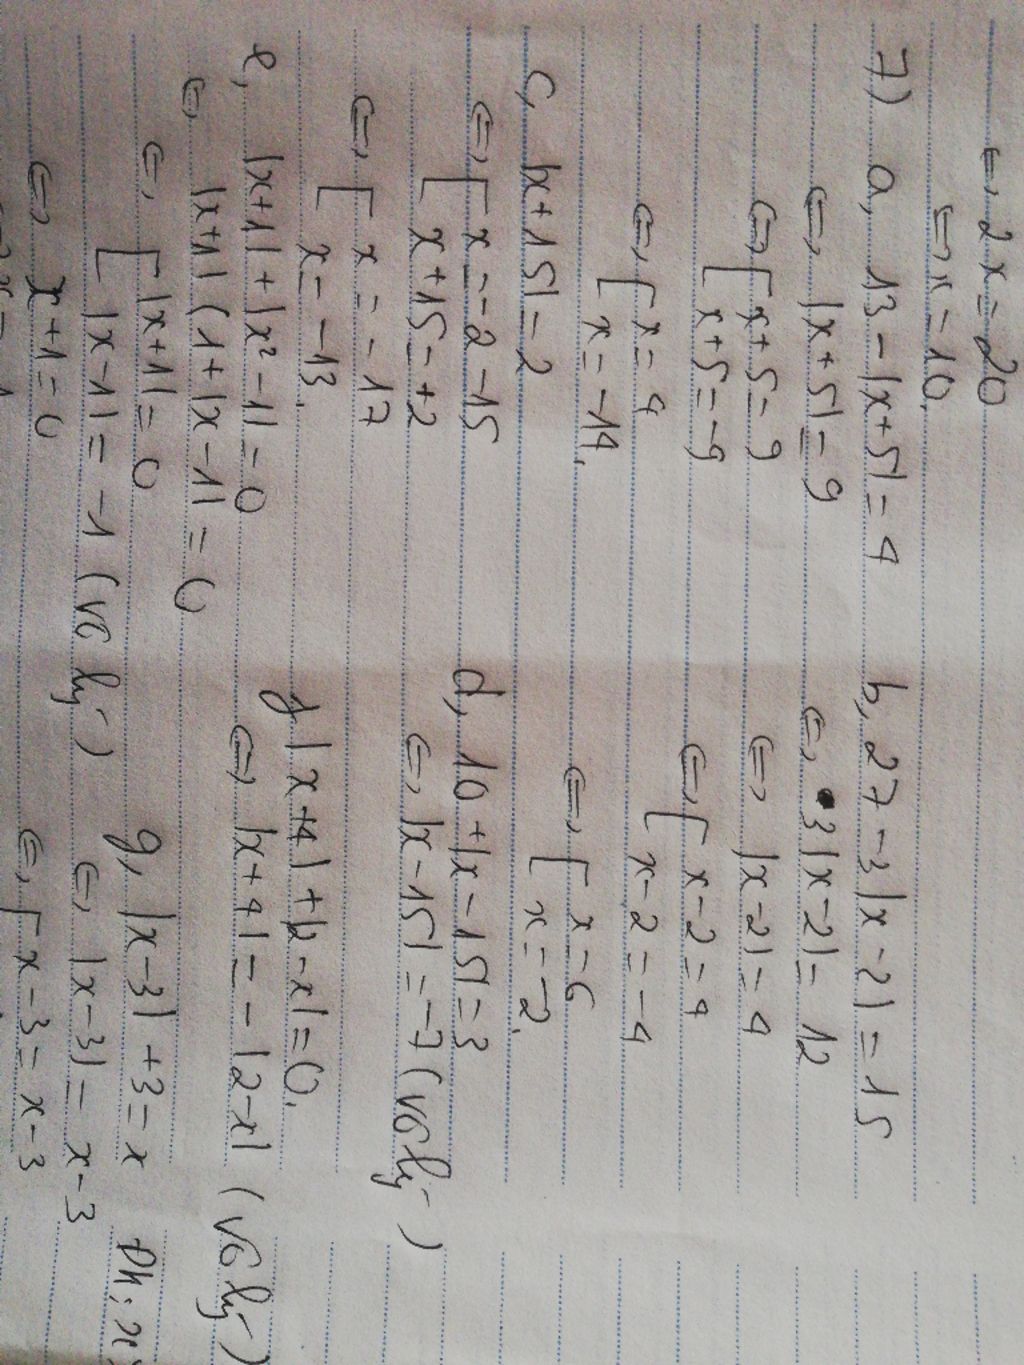 ⇔ 2x = 20
⇔ x = 10.
7) a, 13 - |x+5| = 4
⇔ |x+5| = 9
⇔ [ x+5 = 9
[ x+5 = -9
⇔ [ x = 4
[ x = -14.
b, 27 - 3|x-2| = 15
⇔ 3|x-2| = 12
⇔ |x-2| = 4
⇔ [ x-2 = 4
[ x-2 = -4
⇔ [ x = 6
[ x = -2.
c, |x+15| = 2
⇔ [ x = -2 - 15
[ x+15 = +2
⇔ [ x = -17
[ x = -13.
d, 10 + |x-15| = 3
⇔ |x-15| = -7 (vô lý)
e, |x+1| + |x²-1| = 0
⇔ |x+1| (1+|x-1| = 0
⇔ [ |x+1| = 0
[ |x-1| = -1 (vô lý)
⇔ x+1 = 0
f, |x+4| + |2-x| = 0.
⇔ |x+4| = -|2-x| (vô lý)
g, |x-3| + 3 = x
⇔ |x-3| = x-3
⇔ [ x-3 = x-3
ĐK: x